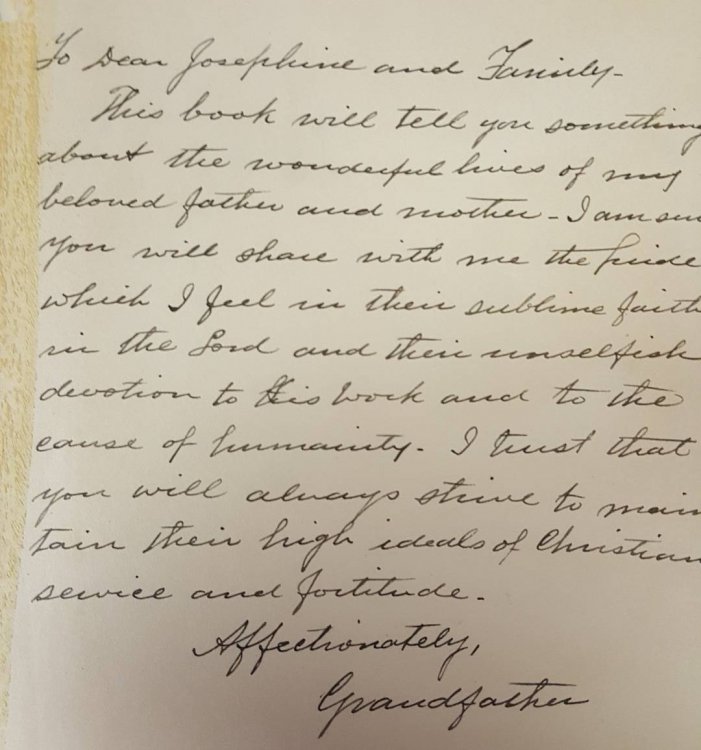 To Dear Josephine and Family-
This book will tell you something
about the wonderful lives of my
beloved father and mother - I am sure
you will share with me the pride
which I feel in their sublime faith
in the Lord and their unselfish
devotion to His work and to the
cause of humanity. I trust that
you will always strive to main
tain their high ideals of Christian
service and fortitude.
Affectionately,
Grandfather